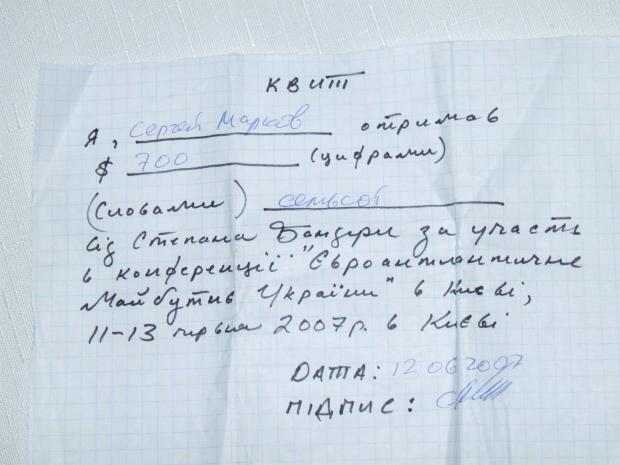 КВИТ
Я, Сергей Марков отримав
$ 700 (цифрами)
(словами) семьсот
від Степана Бандери за участь
в конференції "Євроатлантичне
Майбутнє України" в Києві,
11-13 червня 2007р. в Києві
ДАТА: 12 06 2007
ПІДПИС: